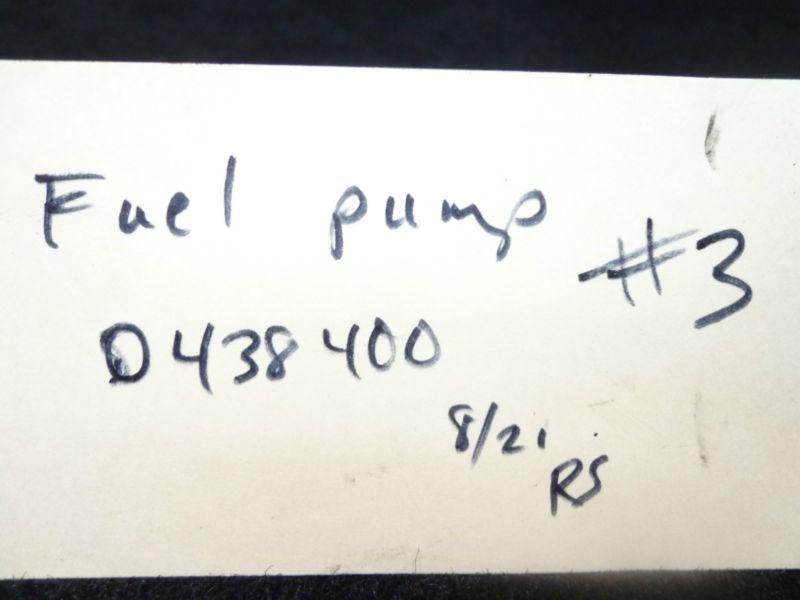 Fuel pump
#3
0438400
8/21
RS